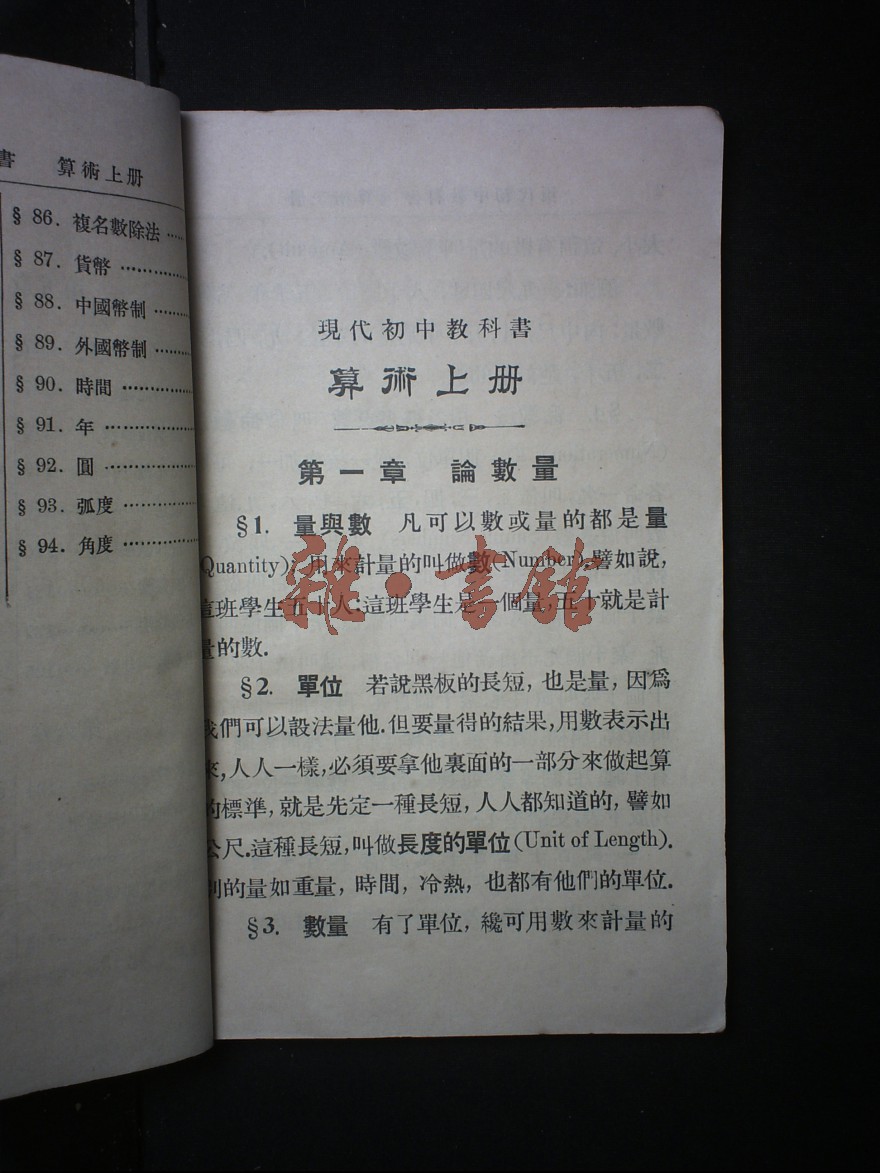 書 算術上册
§ 86. 複名數除法 ……
§ 87. 貨幣 ……
§ 88. 中國幣制 ……
§ 89. 外國幣制 ……
§ 90. 時間 ……
§ 91. 年 ……
§ 92. 圓 ……
§ 93. 弧度 ……
§ 94. 角度 ……
現代初中教科書
算術上册
第一章 論數量
§1. 量與數 凡可以數或量的都是量
(Quantity); 用來計量的叫做數(Number),譬如說,
這班學生五十人;這班學生是一個量,五十就是計
量的數.
§2. 單位 若說黑板的長短, 也是量, 因爲
我們可以設法量他.但要量得的結果,用數表示出
來,人人一樣,必須要拿他裏面的一部分來做起算
的標準, 就是先定一種長短, 人人都知道的, 譬如
公尺.這種長短,叫做長度的單位(Unit of Length).
別的量如重量, 時間, 冷熱, 也都有他們的單位.
§3. 數量 有了單位, 纔可用數來計量的
雜·書館